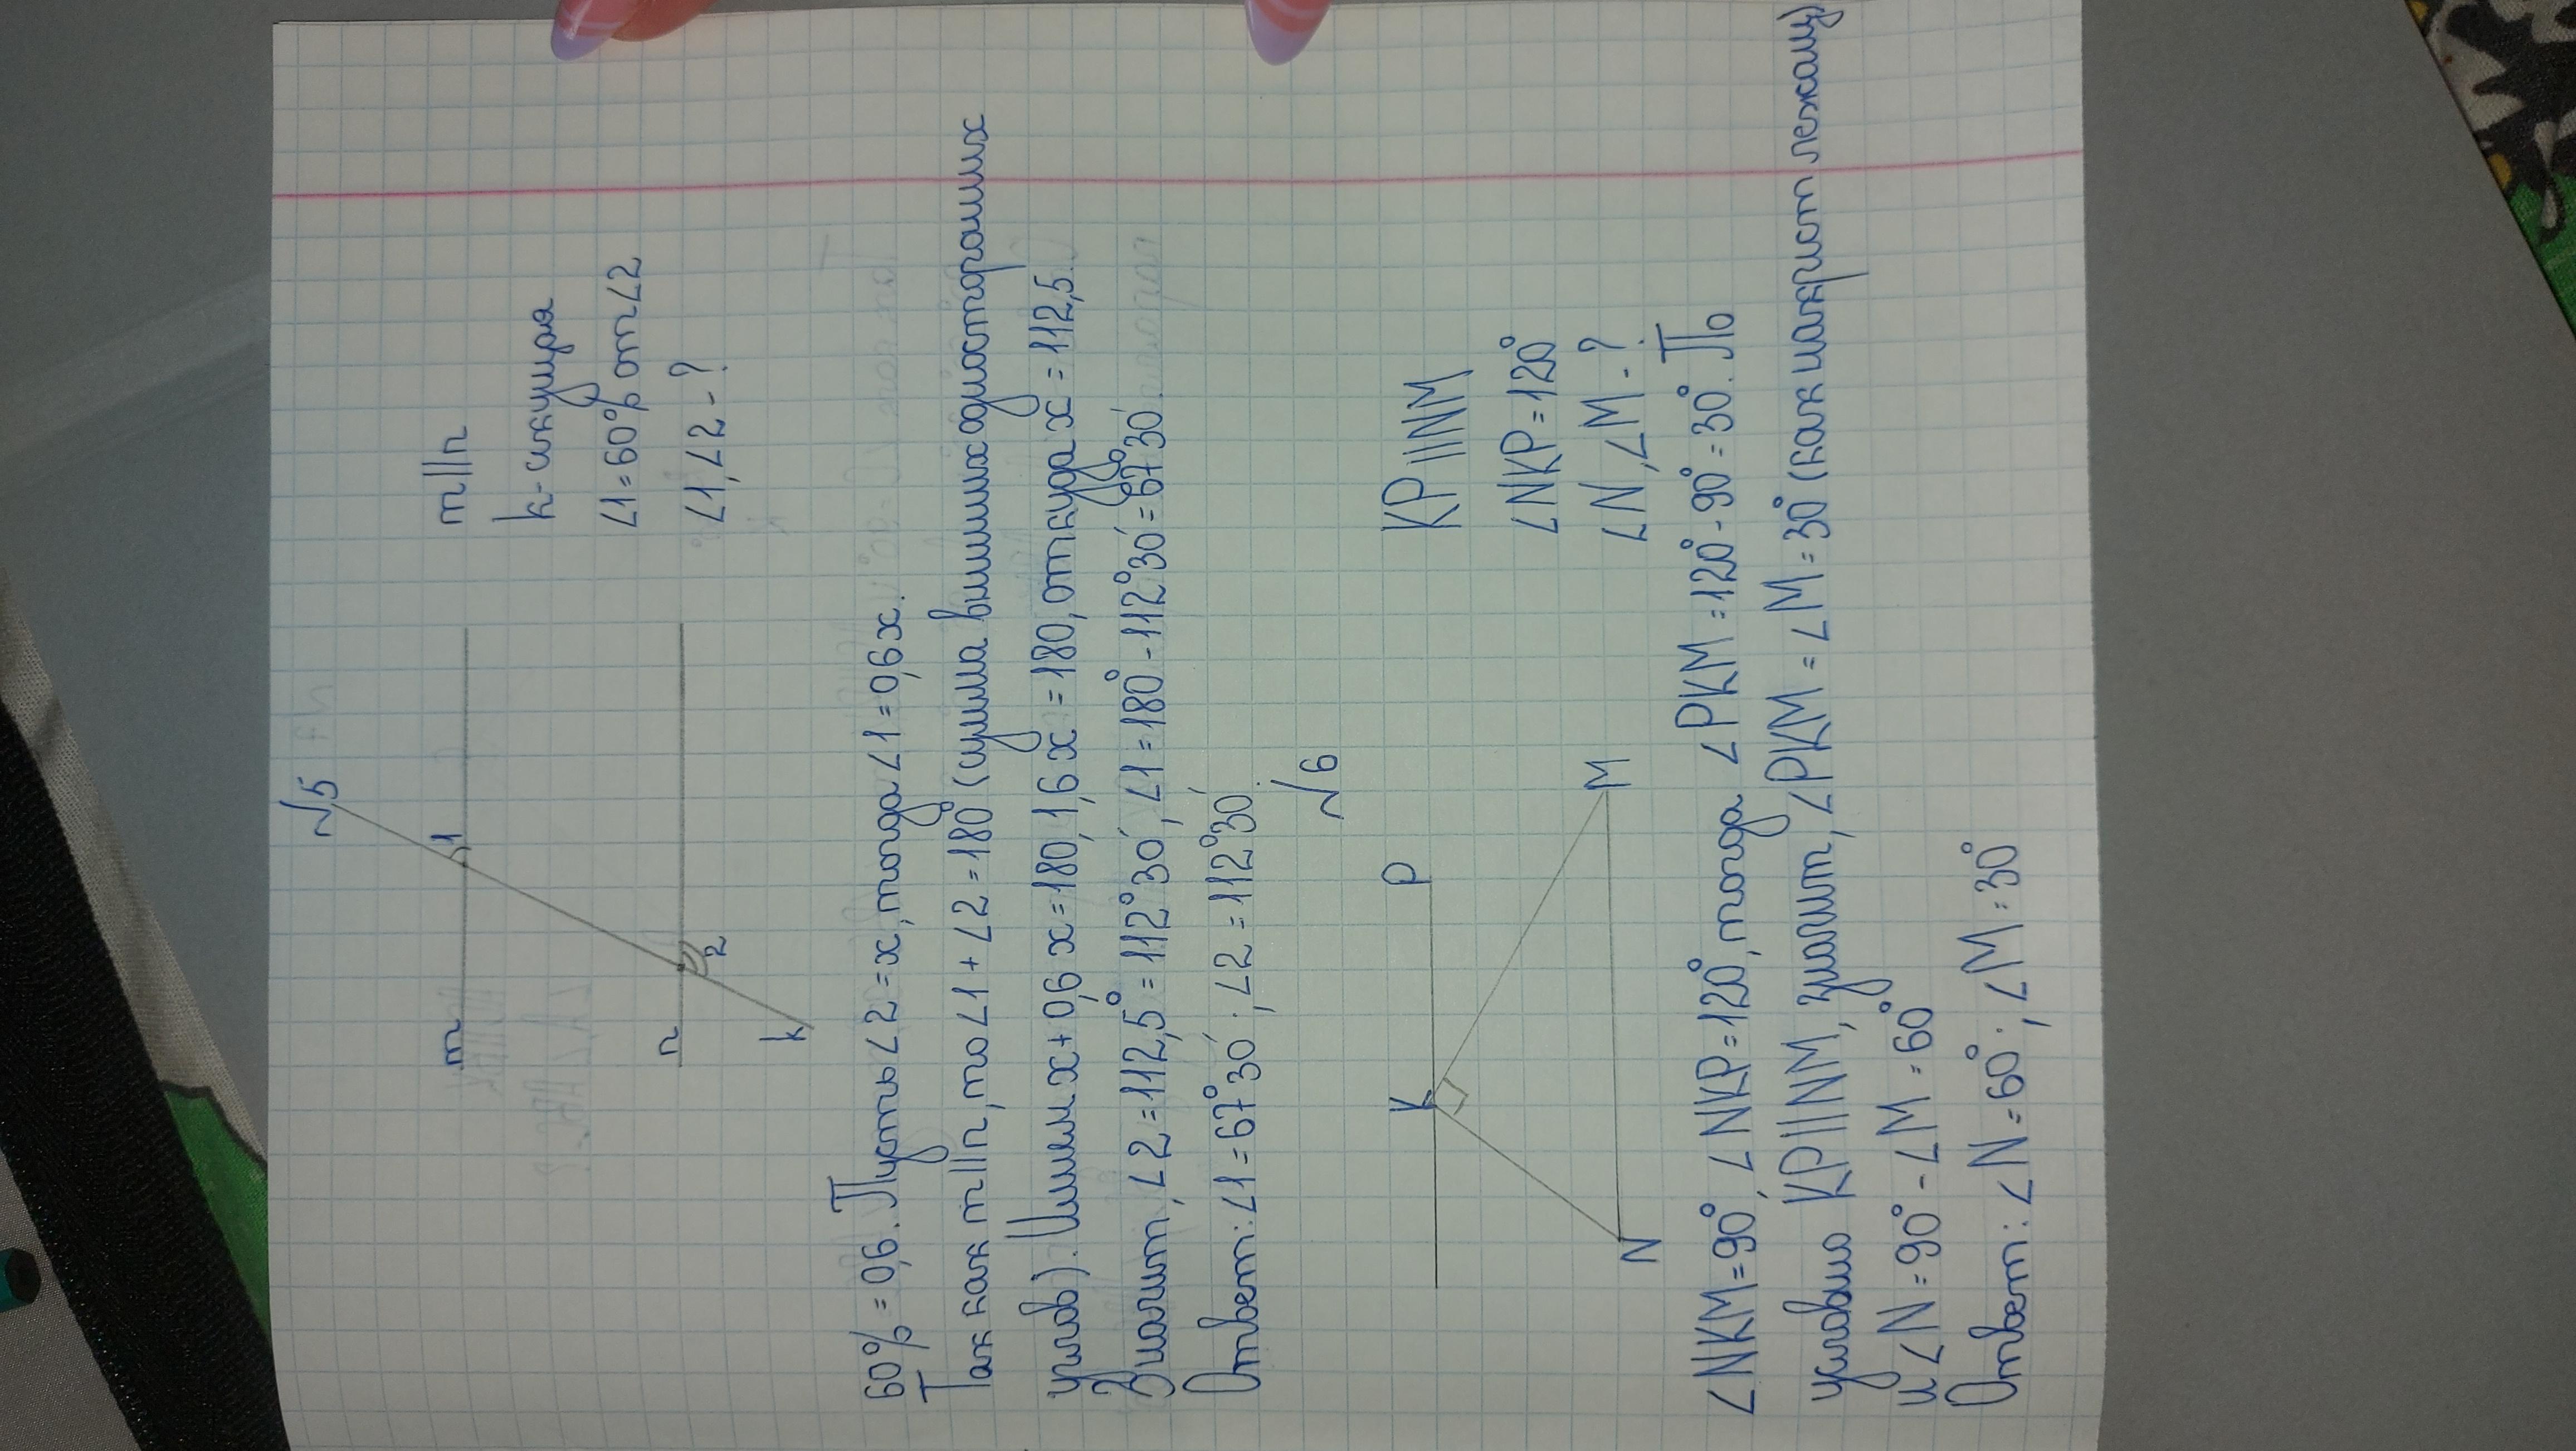 №5
m
1
n
2
k
m||n
k - секущая
∠1 = 60% от ∠2
∠1, ∠2 - ?
60% = 0,6. Пусть ∠2 = x, тогда ∠1 = 0,6x.
Так как m||n, то ∠1 + ∠2 = 180° (сумма внешних односторонних
углов). Имеем x + 0,6x = 180, 1,6x = 180, откуда x = 112,5.
Значит, ∠2 = 112,5° = 112°30′, ∠1 = 180° - 112°30′ = 67°30′.
Ответ: ∠1 = 67°30′; ∠2 = 112°30′.
№6
K
P
N
M
KP||NM
∠NKP = 120°
∠N, ∠M - ?
∠NKM = 90°, ∠NKP = 120°, тогда ∠PKM = 120° - 90° = 30°. По
условию KP||NM, значит, ∠PKM = ∠M = 30° (как накрест лежащ)
и ∠N = 90° - ∠M = 60°
Ответ: ∠N = 60°; ∠M = 30°